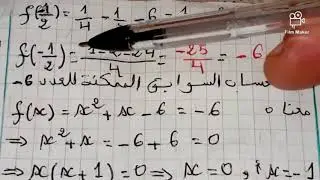 f(-1/2) = 1/4 - 1/2 - 6 =
f(-1/2) = 1-2-24/4 = -25/4 = -6
حساب السوابق الممكنة للعدد 6-
معناه f(x) = x² + x - 6 = -6
⇒ x² + x = -6 + 6 = 0
⇒ x(x+1) = 0 ⇒ x = 0 أو x = -1
Film Maker